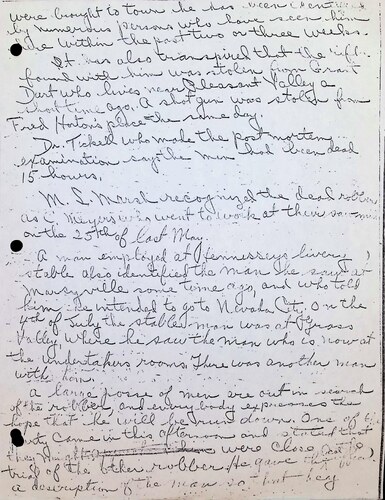 were brought to town he has been
by numerous persons who have seen him
within the past two or three weeks.
It has also transpired that the rifle
found with him was stolen from Grant
Dart who lives near Pleasant Valley a
short time ago. A shotgun was stolen from
Fred Hoton's place the same day.
Dr. Tickell who made the post mortem
examination says the men had been dead
15 hours.
M. L. Marsh recognized the dead robber
as C. Meyers who went to work at their
on the 25th of last May.
A man employed at Hennessys livery
stable also identified the man he says at
Marysville some time ago, and who told
him he intended to go to Nevada City. On the
4th of July the stable man was at Grass
Valley, where he saw the man who is now at
the undertakers rooms. There was another man
with him.
A large posse of men are out in search
of the robber, and everybody expresses the
hope that he will be run down. One of
came in this afternoon and stated that
they were close on the
trail of the other robber. He gave
a description of the man so that